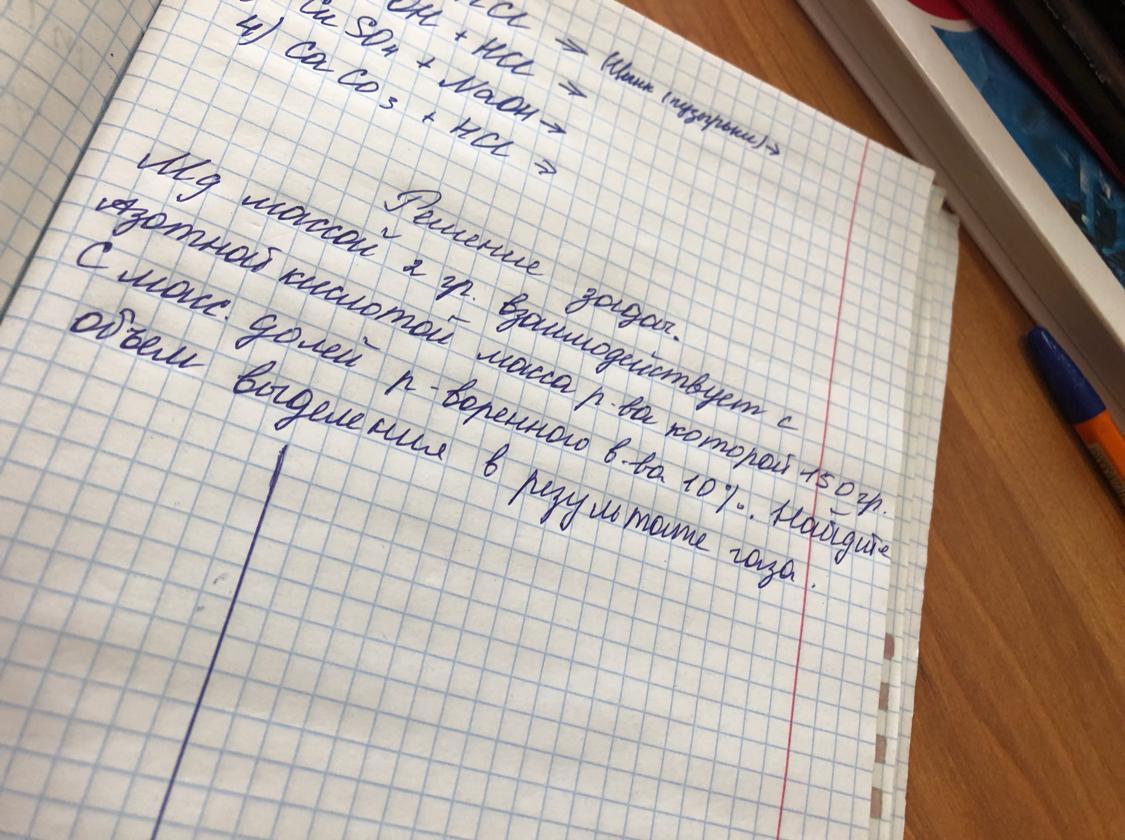 HCl ⇒ (Цинк (пузырьки) ⇒
OH + HCl ⇒
CuSO4 + NaOH ⇒
4) CaCO3 + HCl ⇒
Решение задач.
Mg массой 2 гр. взаимодействует с
Азотной кислотой масса р-ва которой 150 гр.
С масс. долей р-воренного в-ва 10%. Найдите
объем выделения в результате газа.